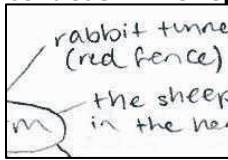 rabbit tunne
(red fence)
the sheep
in the hea
m